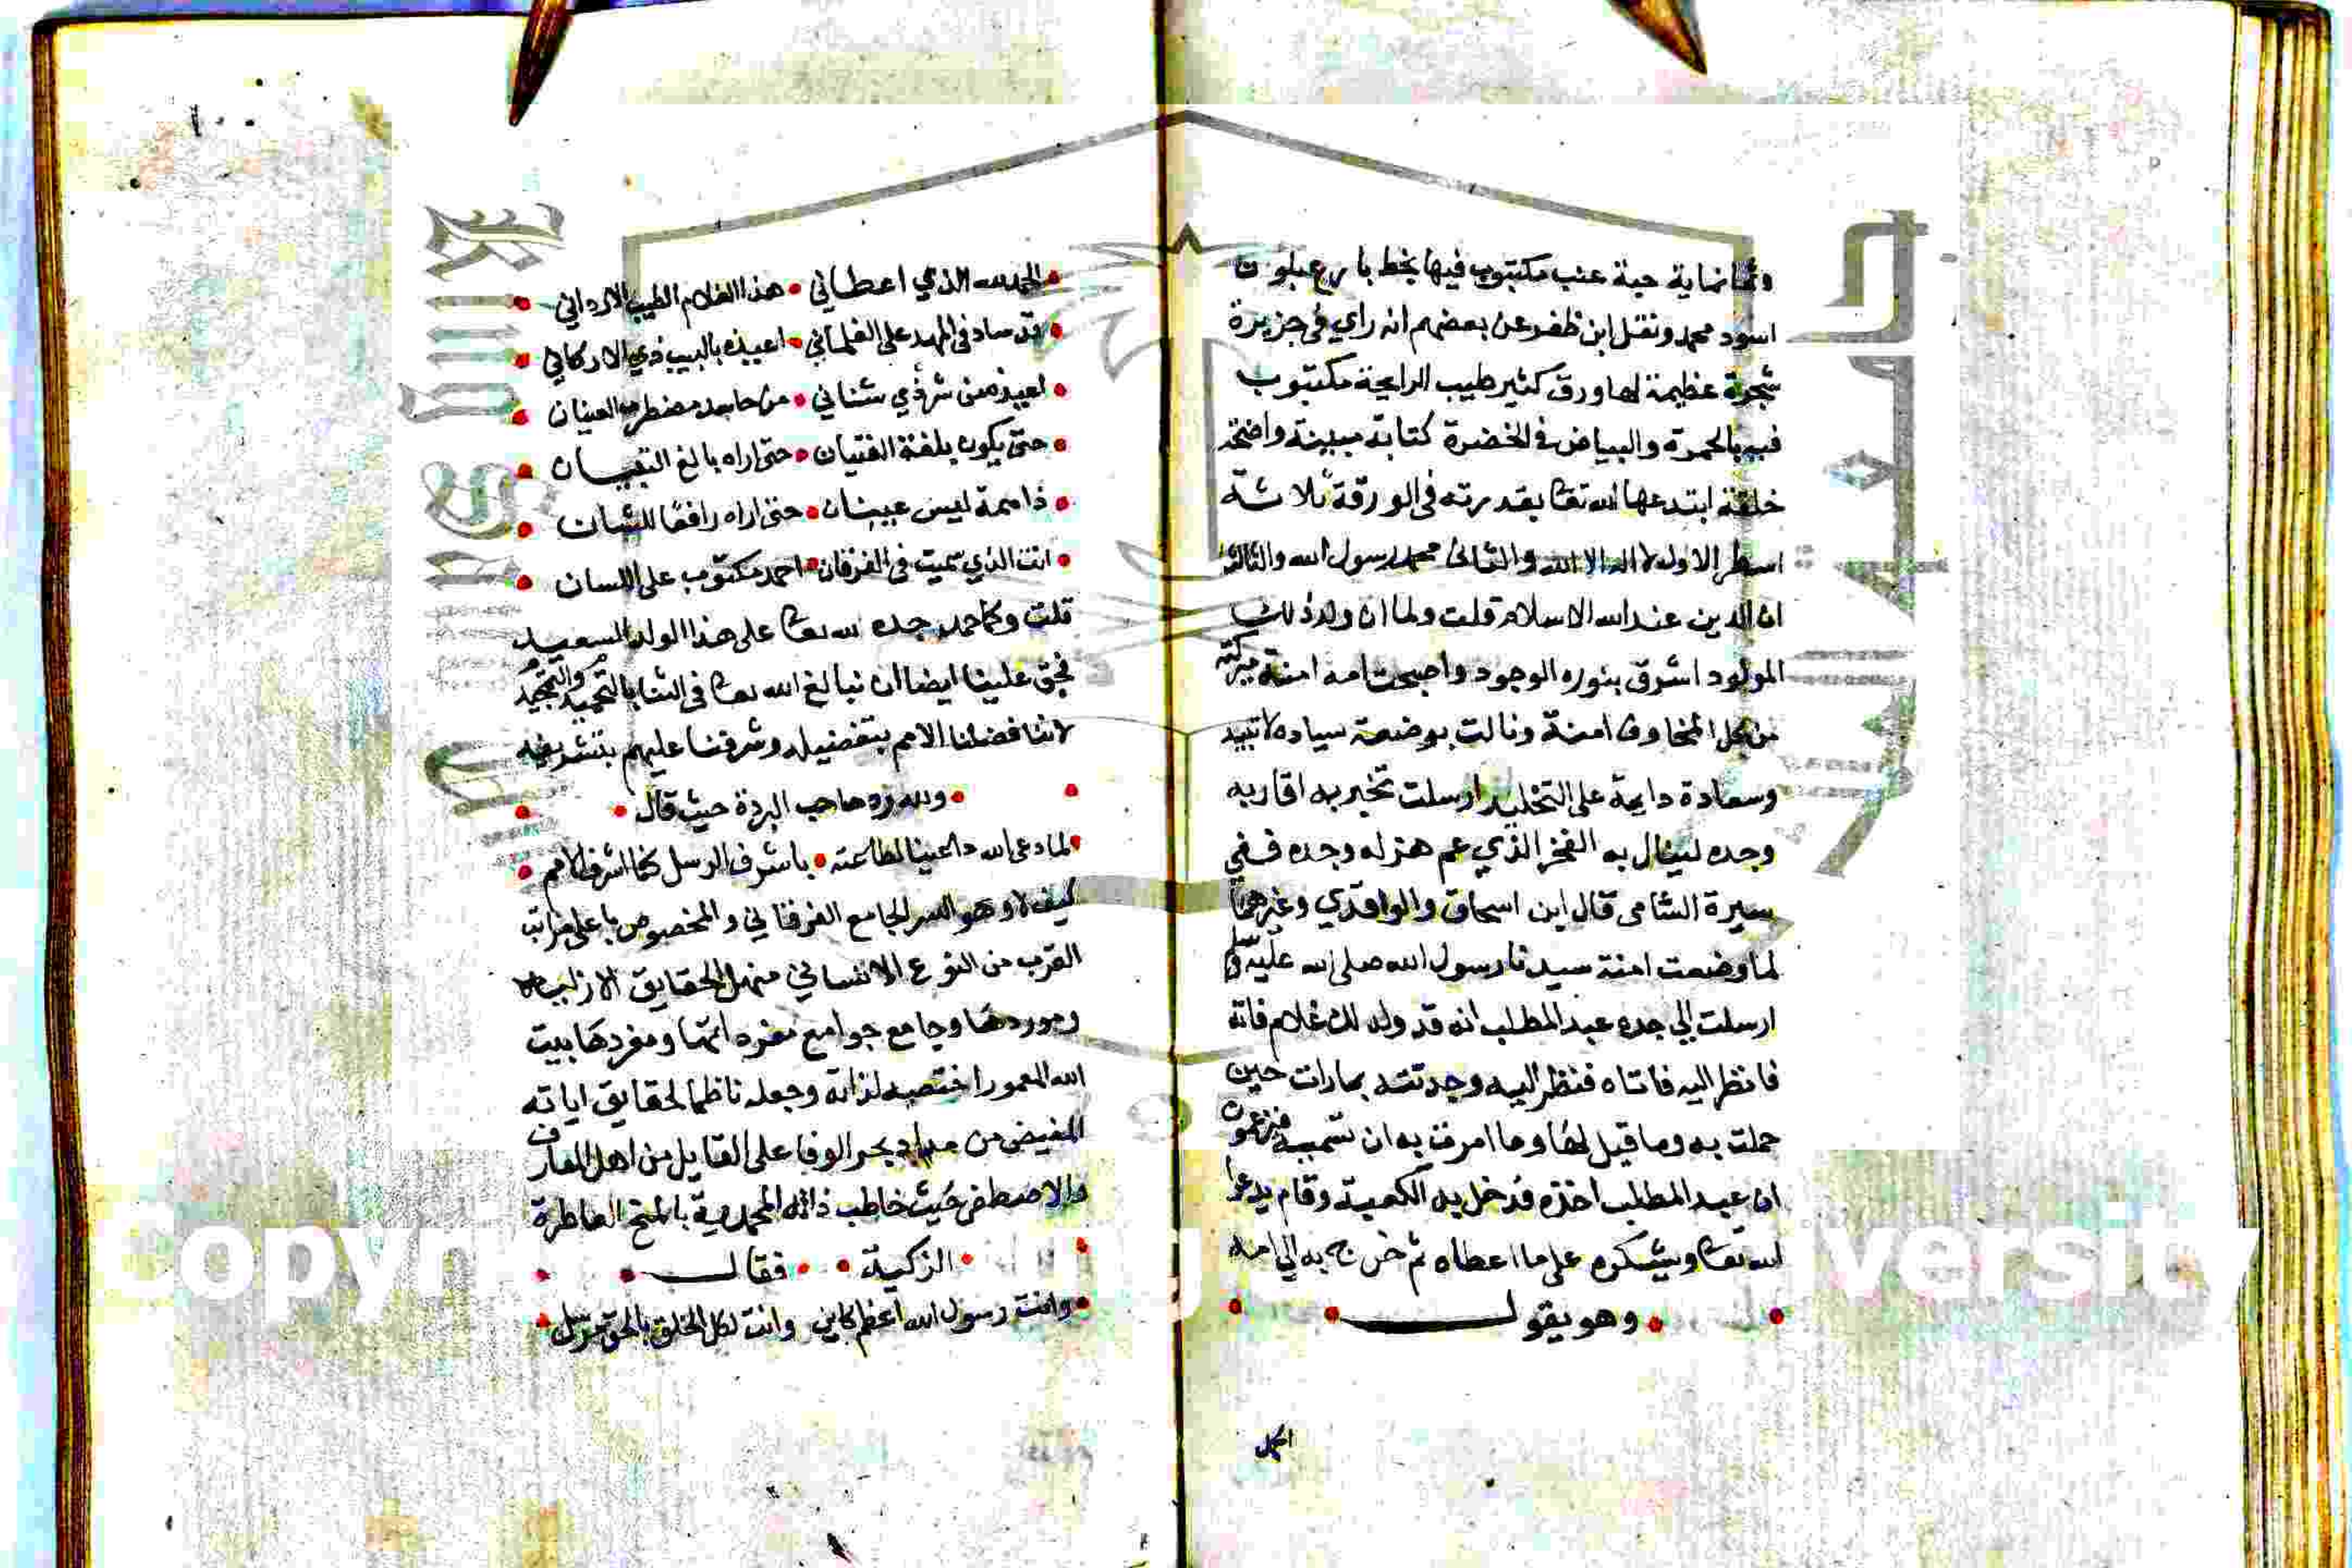 وثمانماية حبة عنب مكتوب فيها بخط بارع بلون
اسود محمد ونقل ابن ظفر عن بعضهم انه راي في جزيرة
شجرة عظيمة لها ورق كثير طيب الرايحة مكتوب
فيه بالحمرة والبياض في الخضرة كتابة مبينة واضحة
خلقة ابتدعها الله تعا بقدرته في الورقة ثلاثة
اسطر الاول لا اله الا الله والثاني محمد رسول الله والثالث
ان الدين عند الله الاسلام قلت ولما ان ولد ذلك
المولود اشرق بنوره الوجود واصبحت امه امنة
من كل المخاوف امنة ونالت بوضعه سياده لا تبيد
وسعادة دايمة على التخليد ارسلت تخبر به اقاربه
وجده لينال به الفخر الذي عم هزله وجده ففي
سيرة الشامي قال ابن اسحاق والواقدي وغيرهما
لما وضعت امنة سيدنا رسول الله صلى الله عليه وسلم
ارسلت الي جده عبد المطلب انه قد ولد لك غلام فاته
فانظر اليه فاتاه فنظر اليه وحدثته بما رات حين
حملت به وما قيل لها وما امرت به ان تسميه فيزعمون
ان عبد المطلب اخذه فدخل به الكعبة وقام يدعوا
الله تعا ويشكره على ما اعطاه ثم خرج به الي امه
وهو يقول
الحمد
١٠٠
الحمد لله الذي اعطاني هذا الغلام الطيب الارداني
قد ساد في المهد على الغلماني اعيذه بالبيت ذي الاركاني
اعيذه من شر ذي شناني من حاسد مضطرب العينان
حتى يكون بلغة الفتيان حتى اراه بالغ البنيان
ذا همة ليس عينان حتى اراه رافعا للشان
انت الذي سميت في الفرقان احمد مكتوب على اللسان
قلت وكما حمد جده الله تعا على هذا الولد السعيد
فحق علينا ايضا ان نبالغ الله تعا في الثنا بالتحميد والتمجيد
لاننا فضلنا الامم بتفضيله وشرفنا عليهم بتشريفه
ولله در صاحب البردة حيث قال
لما دعى الله داعينا لطاعته باشرف الرسل كنا اشرف الامم
كيف لا وهو السر الجامع الفرقاني والمخصوص باعلى مراتب
القرب من النوع الانساني منهل الحقايق الازلية
وموردها وجامع جوامع مفرداتها ومفردها بيت
الله المعمور اختصه لذاته وجعله ناظما لحقايق اياته
المفيض من مداد بحر الوفا على القايل من اهل المعارف
والاصطفى حيث خاطب ذاته المحمدية بالمنح العاطرة
الزكية فقال
وانت رسول الله اعظم كاين وانت لكل الخلق بالحق مرسل